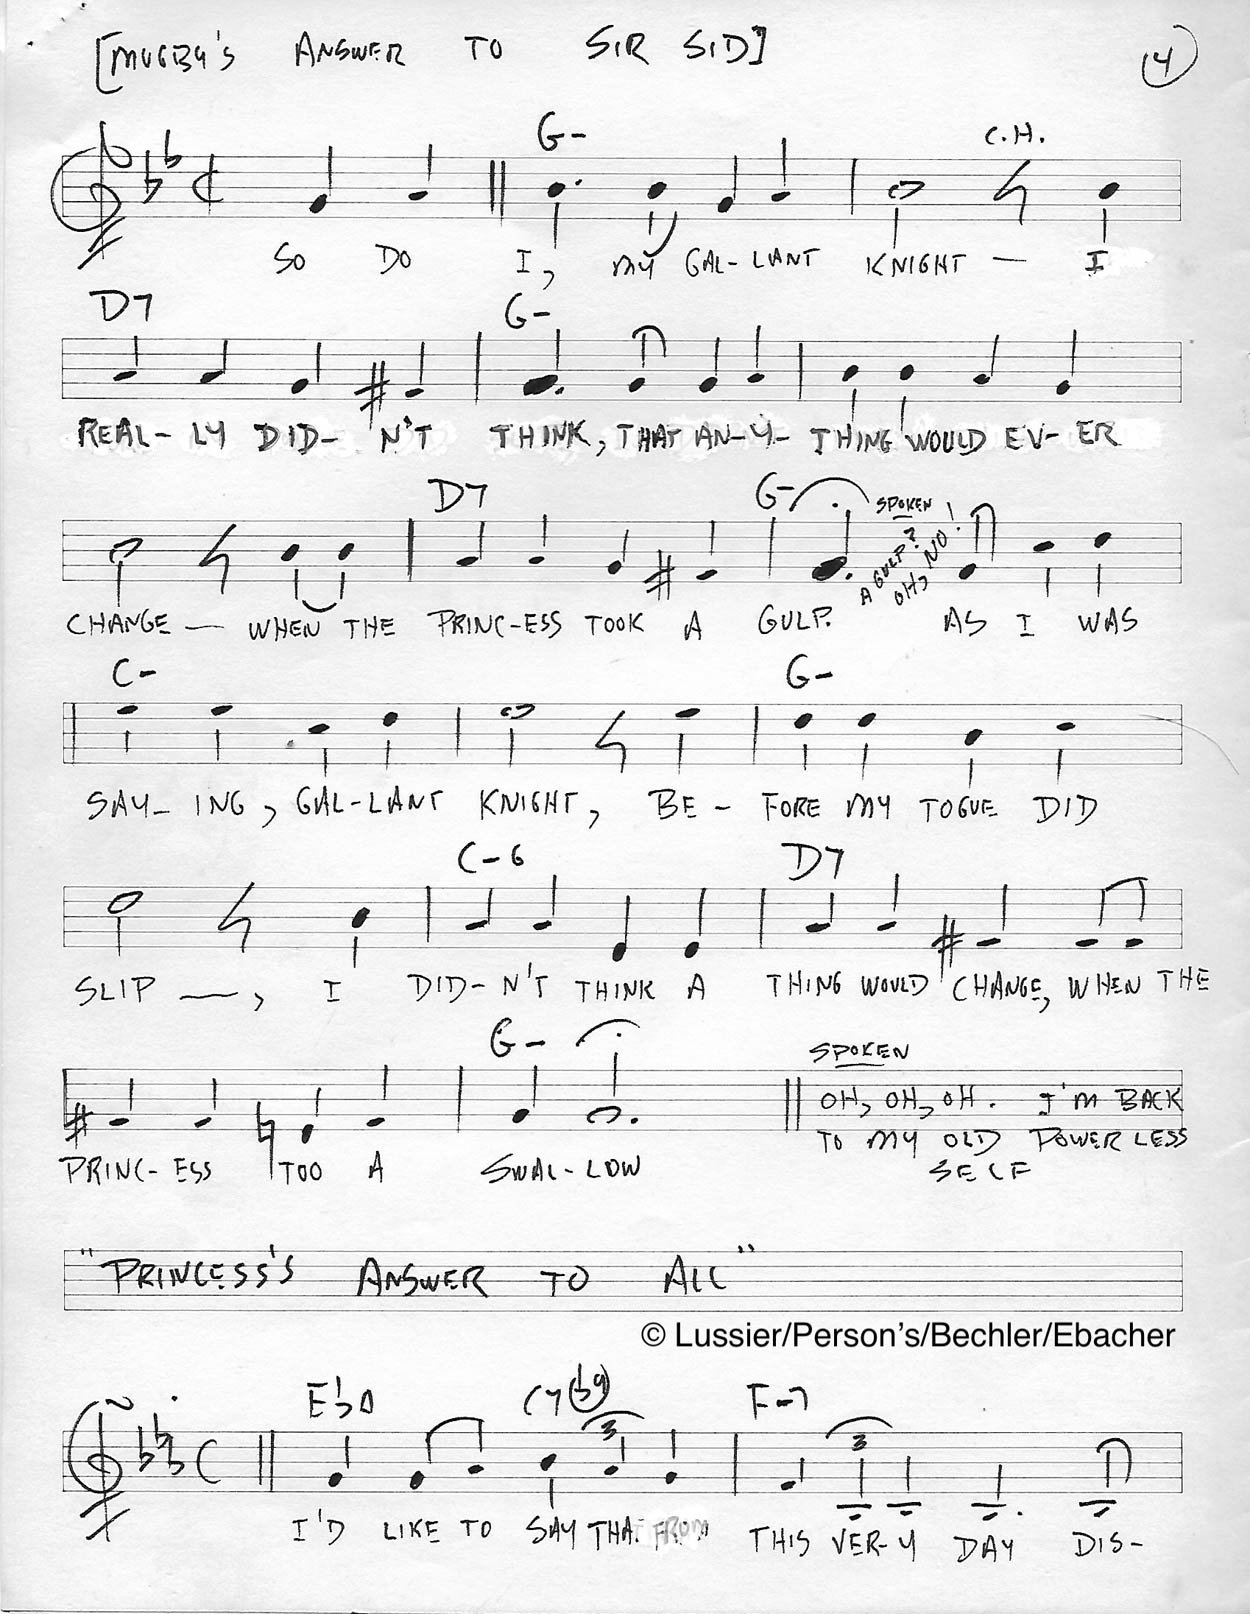 [MUGBY'S ANSWER TO SIR SID]
14
G- C.H.
SO DO I, MY GAL-LANT KNIGHT — I
D7 G-
REAL-LY DID-N'T THINK, THAT AN-Y-THING WOULD EV-ER
D7 G- SPOKEN
A GULP? OH, NO!
CHANGE — WHEN THE PRINC-ESS TOOK A GULP. AS I WAS
C- G-
SAY-ING, GAL-LANT KNIGHT, BE-FORE MY TOGUE DID
C-6 D7
SLIP —, I DID-N'T THINK A THING WOULD CHANGE, WHEN THE
G- SPOKEN
OH, OH, OH. I'M BACK
TO MY OLD POWERLESS
SELF
PRINC-ESS TOO A SWAL-LOW
"PRINCESS'S ANSWER TO ALL"
© Lussier/Person's/Bechler/Ebacher
E♭Δ C7(♭9) F-7
3 3
I'D LIKE TO SAY THAT FROM THIS VER-Y DAY DIS-